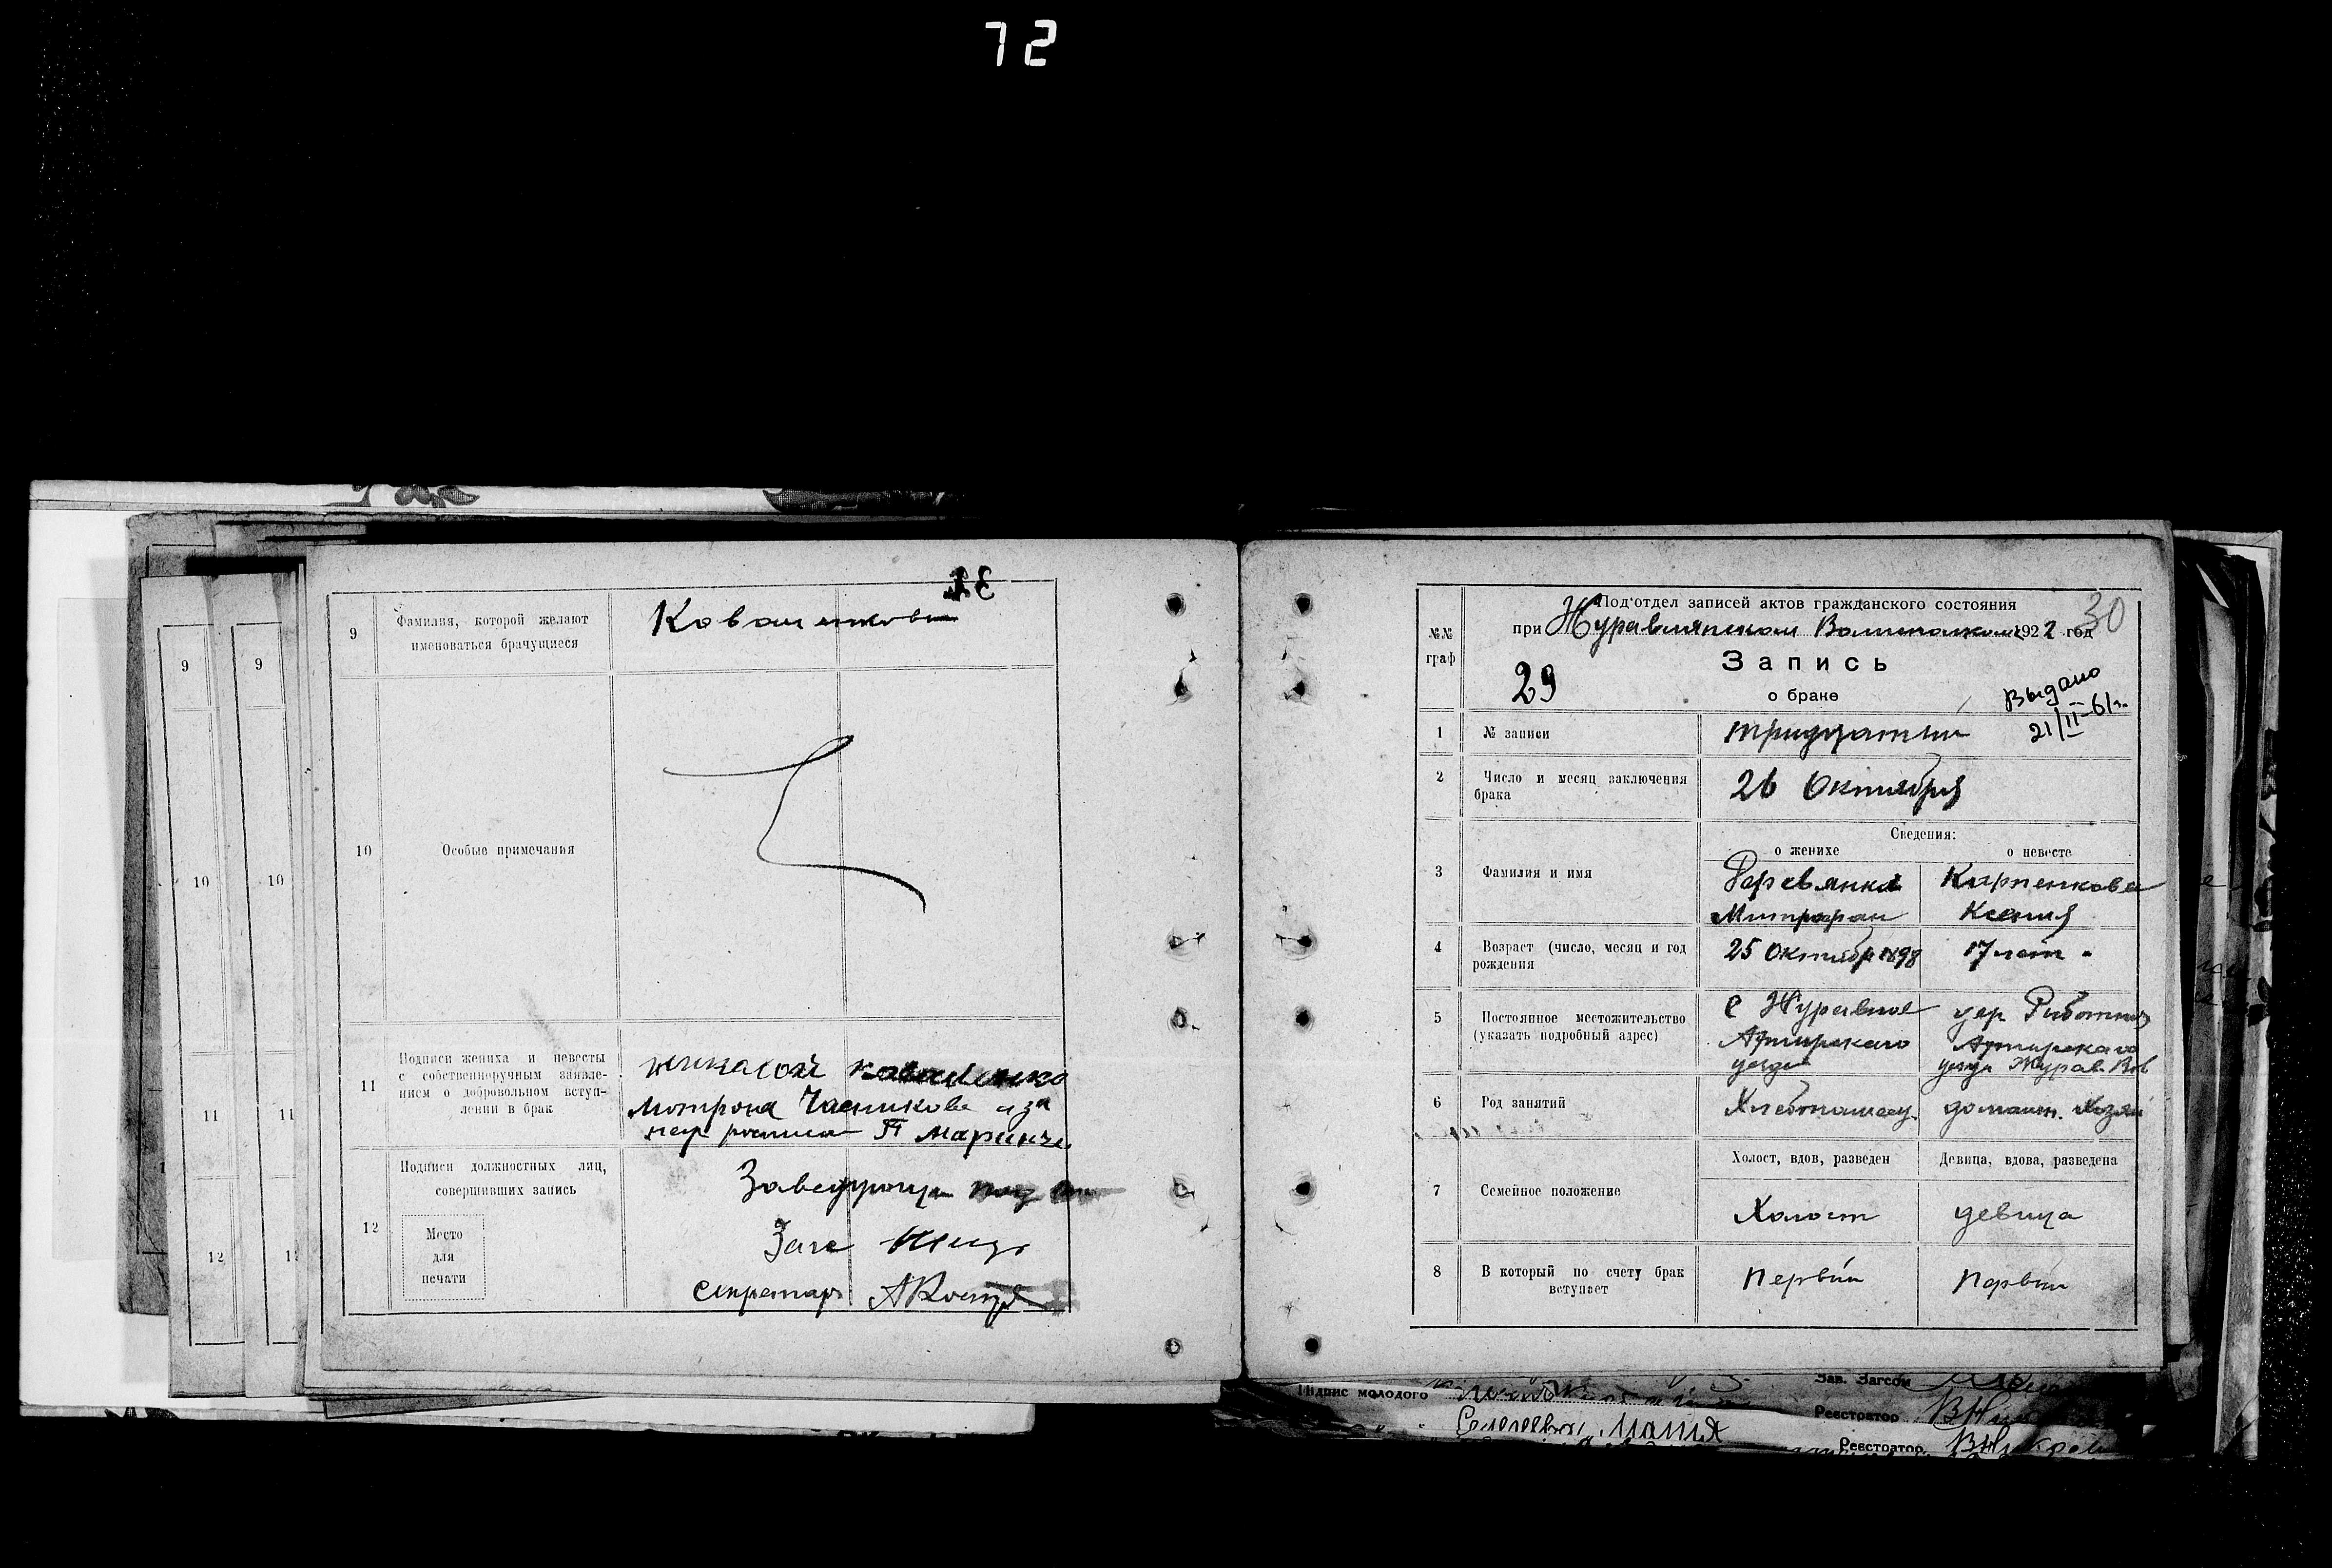 72
9
10
11
12
9
10
11
9
Фамилия, которой желают
именоваться брачущиеся
Коваленковы
10
Особые примечания
11
Подписи жениха и невесты
с собственноручным заявле-
нием о добровольном вступ-
лении в брак
Коваленко
Мотрона Часникова а за
нер росписа П Маринче
12
Подписи должностных лиц,
совершивших запись
Место
для
печати
Заведующи под
Загс
Секретарь
№№
граф
Под‘отдел записей актов гражданского состояния
при Журавлянском Волисполком 1922 год
30
29
Запись
о браке
Выдано
21/II-61г.
1
№ записи
тридцатый
2
Число и месяц заключения
брака
26 Октября
Сведения:
о женихе
о невесте
3
Фамилия и имя
Деревянко
Митрофан
Карпенкова
Ксения
4
Возраст (число, месяц и год
рождения
25 Октября 1898
17 лет
5
Постоянное местожительство
(указать подробный адрес)
с Журавное
Ахтирскаго
уезда
дер
Ахтирскаго
уезда Журав. Вол
6
Род занятий
Хлебопашец.
домашн. Хозяй
7
Семейное положение
Холост, вдов, разведен
Девица, вдова, разведена
Холост
девица
8
В который по счету брак
вступает
Первый
Первый
Підпис молодого
Зав. Загсом
Реєстратор
Реєстратор